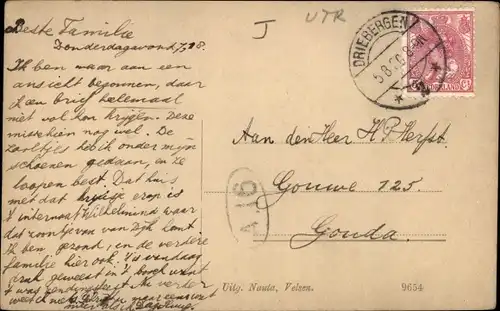 Beste Familie
Donderdagavond 7.98.
Ik ben maar aan een
ansicht begonnen, daar
ik een brief helemaal
niet vol kan krijgen. Deze
misschien nog wel. De
zooltjes heb ik onder mijn
schoenen gedaan, en ze
loopen best. Dat huis
met dat erop is
't internaat Wilhelmina waar
dat zoontje van zijk komt
Ik ben gezond, en de verdere
familie hier ook. vandaag
geweest in 't bosch want
't was zendingsfeest.
J
UTR
DRIEBERGEN
5.8.
NEDERLAND
Aan den Heer H. P. Herfst.
Gouwe 125.
Gouda.
A.16
Uitg. Nauta, Velzen.
9654